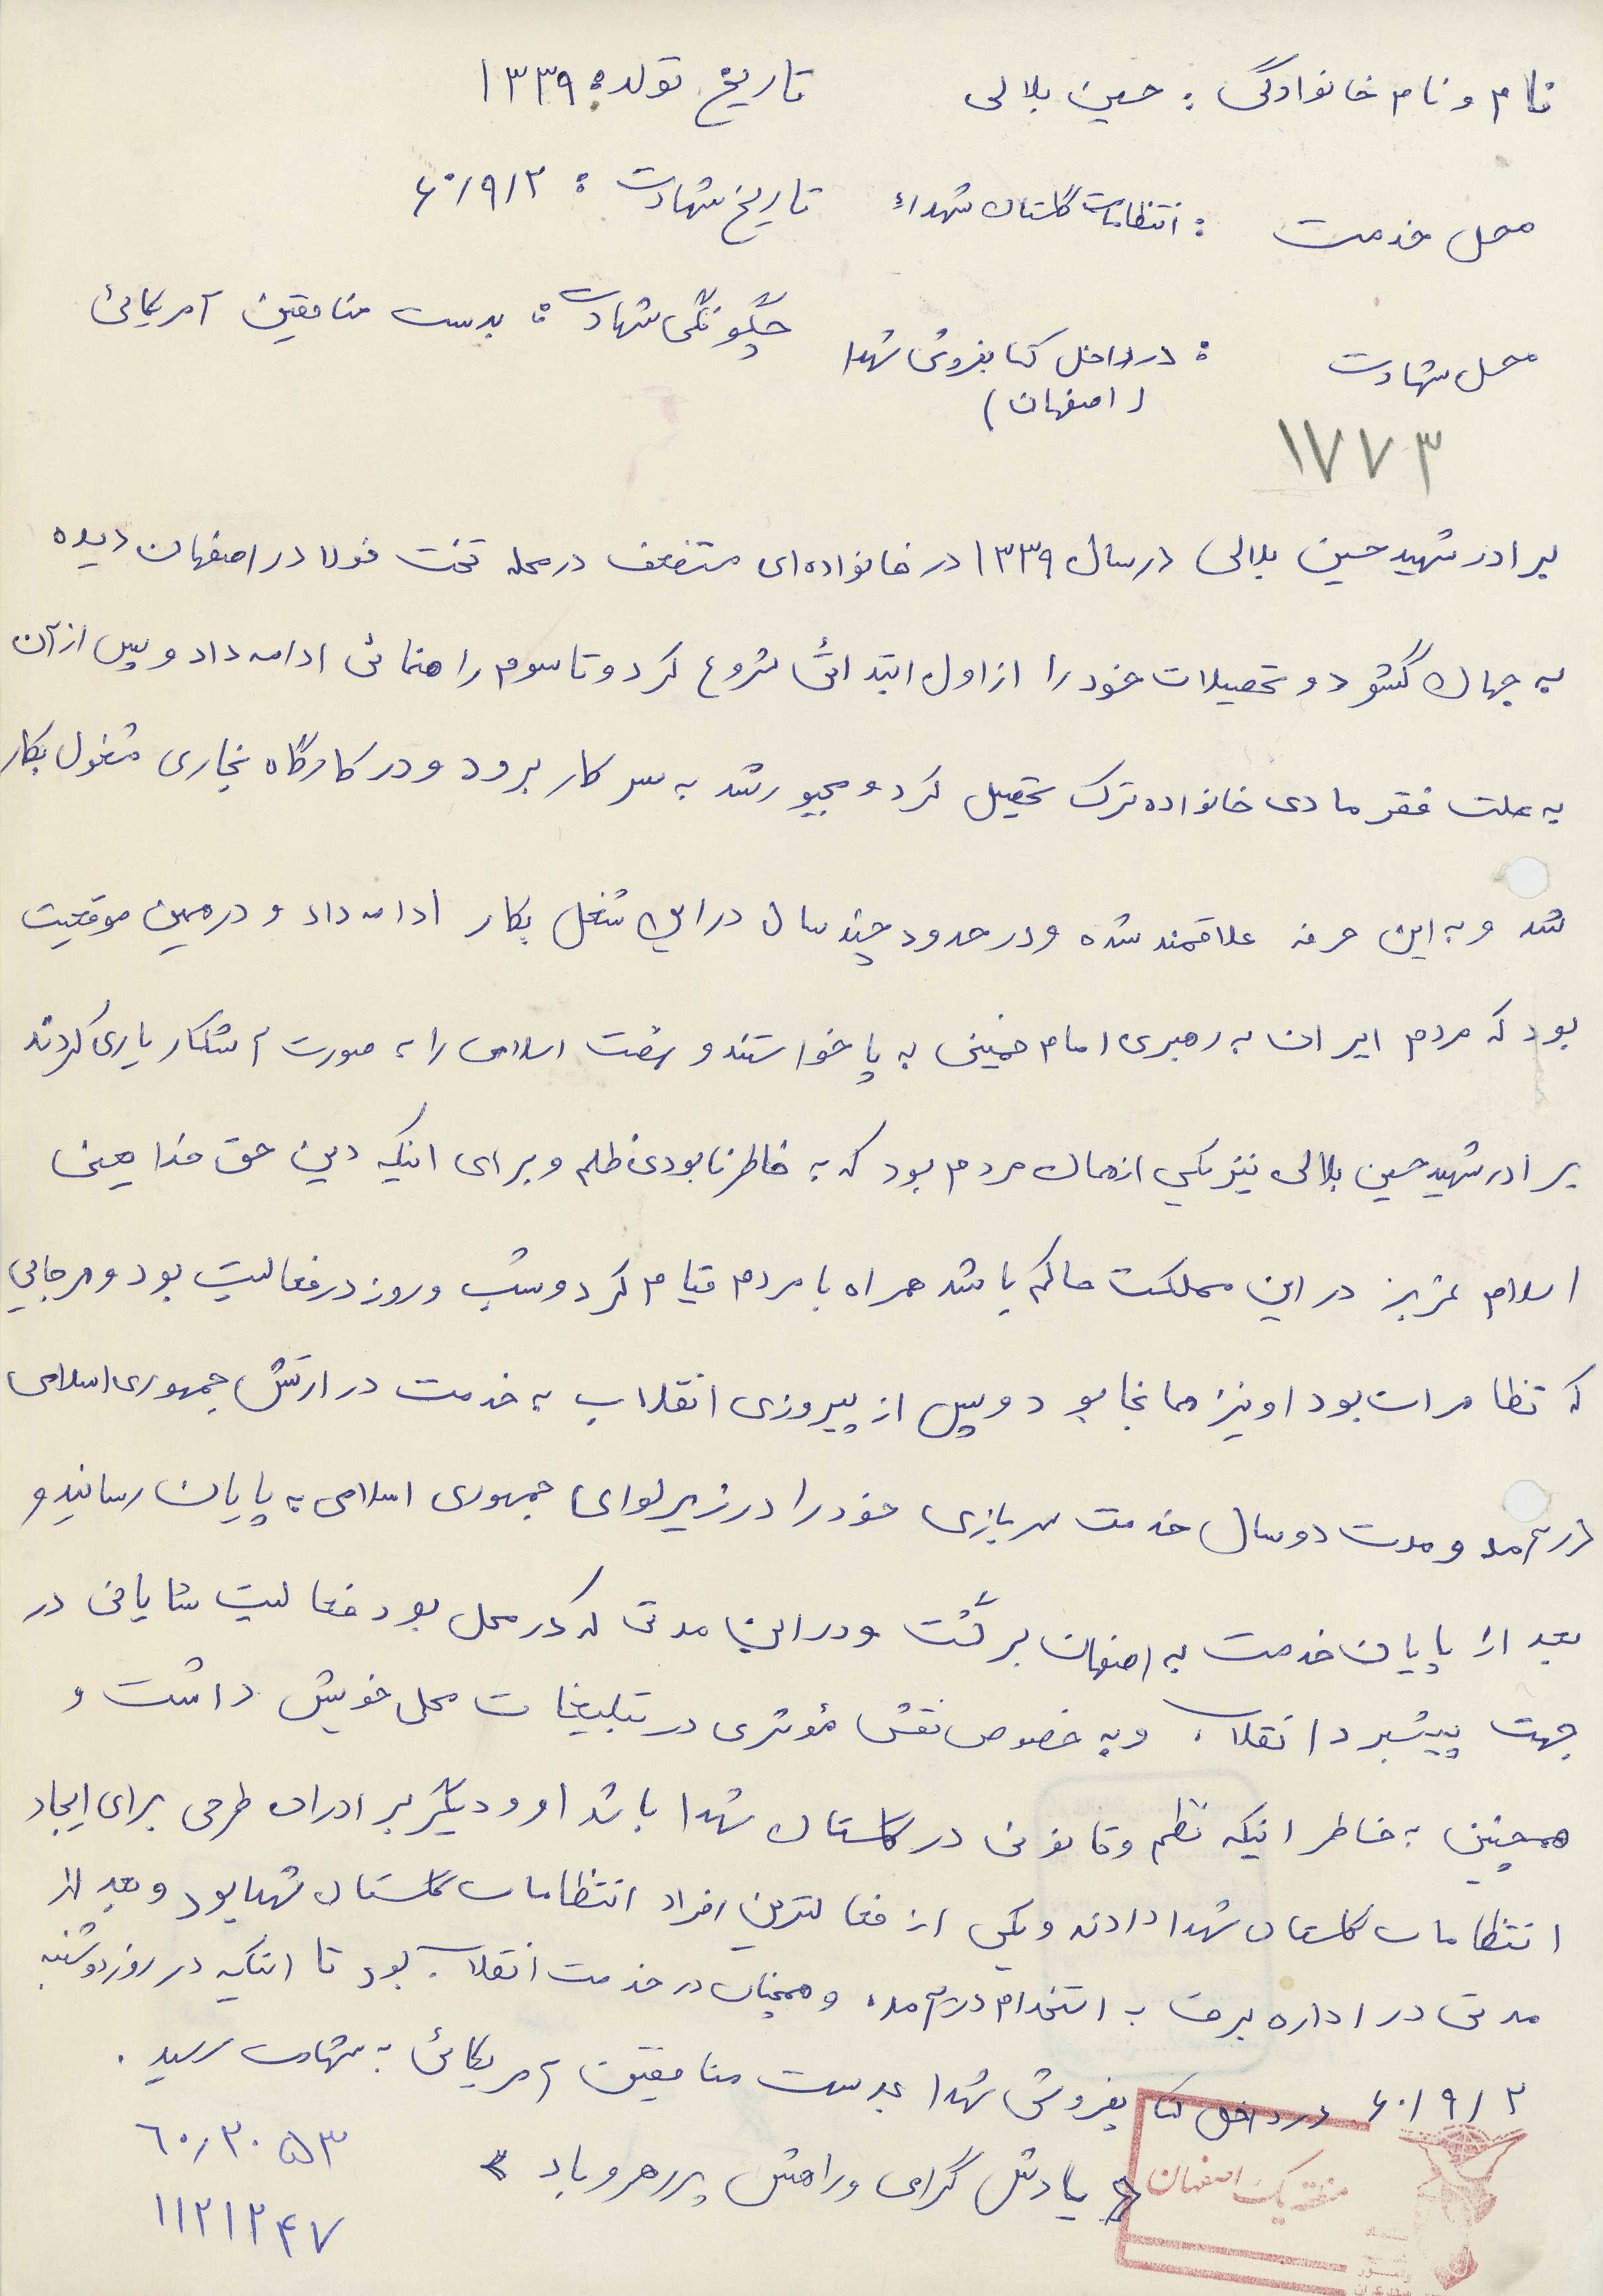 نام و نام خانوادگی : حسین بلالی تاریخ تولد : ۱۳۳۹
محل خدمت : انتظامات گلستان شهداء تاریخ شهادت : ۶۰/۹/۲
محل شهادت : در داخل کتابفروشی شهدا چگونگی شهادت : بدست منافقین آمریکائی
(اصفهان)
۱۷۷۳
برادر شهید حسین بلالی در سال ۱۳۳۹ در خانواده‌ای متضعف در محله تخت فولاد در اصفهان دیده
به جهان گشود و تحصیلات خود را از اول ابتدائی شروع کرد و تا سوم راهنمائی ادامه داد و پس از آن
به علت فقر مادی خانواده ترک تحصیل کرد و مجبور شد به سر کار برود و در کارگاه نجاری مشغول بکار
شد و به این حرفه علاقمند شده و در حدود چند سال در این شغل بکار ادامه داد و در همین موقعیت
بود که مردم ایران به رهبری امام خمینی به پا خواستند و نهضت اسلامی را به صورت آشکار یاری کردند
برادر شهید حسین بلالی نیز یکی از همان مردم بود که به خاطر نابودی ظلم و برای اینکه دین حق خدا یعنی
اسلام عزیز در این مملکت حاکم باشد همراه با مردم قیام کرد و شب و روز در فعالیت بود و هر جایی
که تظاهرات بود او نیز همانجا بود و پس از پیروزی انقلاب به خدمت در ارتش جمهوری اسلامی
در آمد و مدت دو سال خدمت سربازی خود را در زیر لوای جمهوری اسلامی به پایان رسانید و
بعد از پایان خدمت به اصفهان برگشت و در این مدتی که در محل بود فعالیت شایانی در
جهت پیشبرد انقلاب و به خصوص نقش مؤثری در تبلیغات محل خویش داشت و
همچنین به خاطر اینکه نظم و قانونی در گلستان شهدا باشد او و دیگر برادران طرحی برای ایجاد
انتظامات گلستان شهدا دادند و یکی از فعالترین افراد انتظامات گلستان شهدا بود و بعد از
مدتی در اداره برق به استخدام درآمد و همچنان در خدمت انقلاب بود تا اینکه در روز دوشنبه
۶۰/۹/۲ در داخل کتابفروشی شهدا بدست منافقین آمریکائی به شهادت رسید .
« یادش گرامی و راهش پر رهرو باد »
۶۰۲۰۵۳
۱۱۲۱۲۴۷
منطقه یک اصفهان